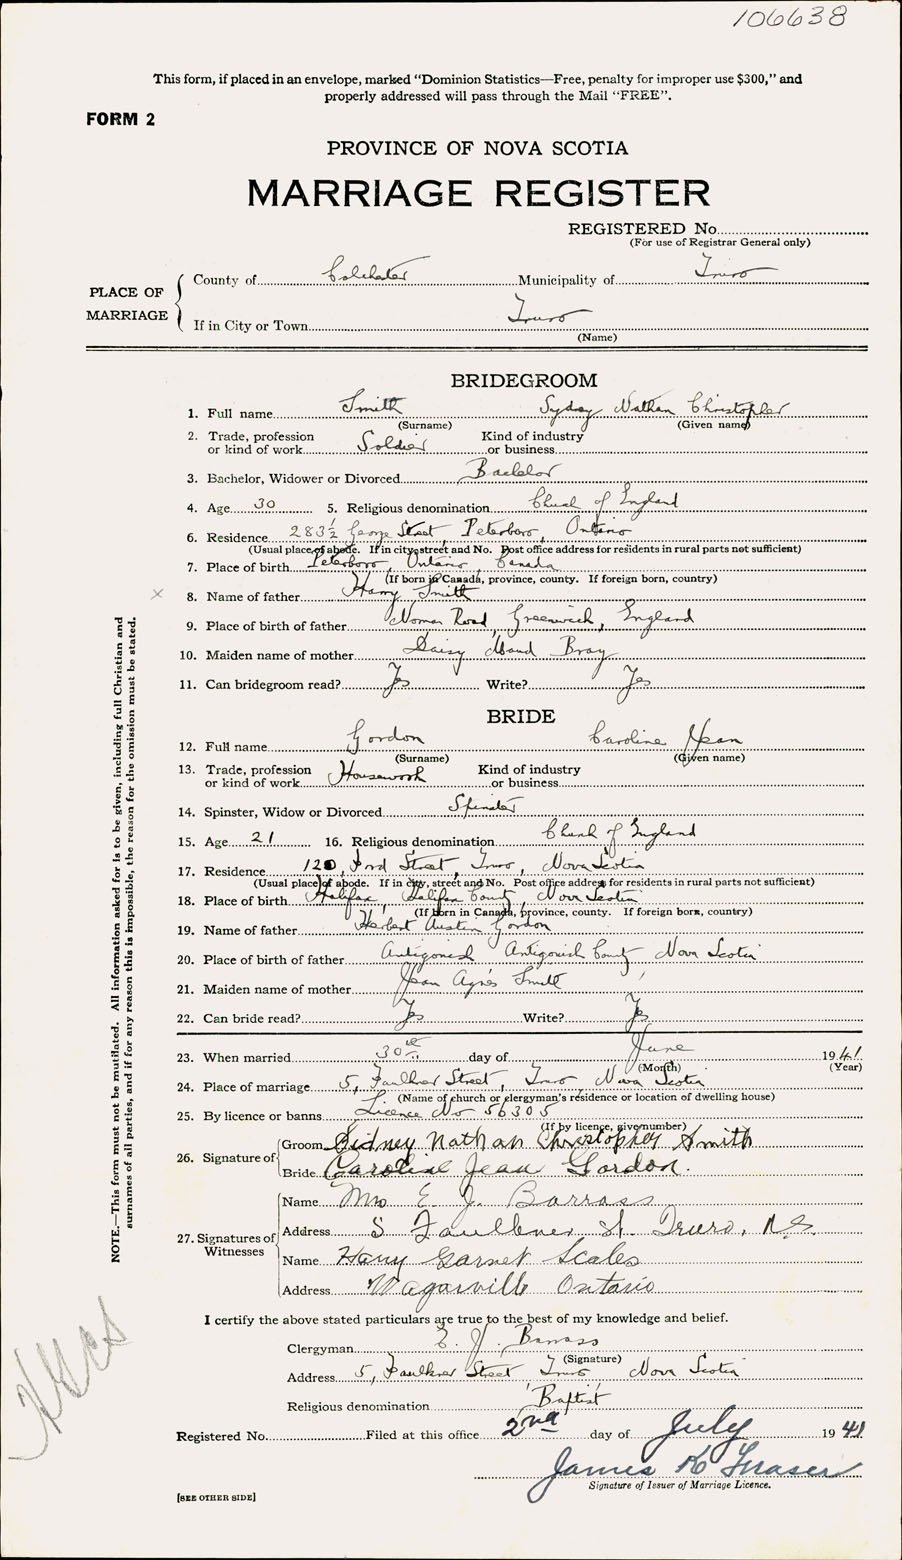 106638
This form, if placed in an envelope, marked "Dominion Statistics—Free, penalty for improper use $300," and
properly addressed will pass through the Mail "FREE".
FORM 2
PROVINCE OF NOVA SCOTIA
MARRIAGE REGISTER
REGISTERED No.
(For use of Registrar General only)
PLACE OF MARRIAGE
County of Colchester Municipality of Truro
If in City or Town Truro
(Name)
BRIDEGROOM
1. Full name Smith Sydney Nathan Christopher
(Surname) (Given name)
2. Trade, profession or kind of work Soldier Kind of industry or business
3. Bachelor, Widower or Divorced Bachelor
4. Age 30 5. Religious denomination Church of England
6. Residence 283½ George Street, Peterboro, Ontario
(Usual place of abode. If in city street and No. Post office address for residents in rural parts not sufficient)
7. Place of birth Peterboro, Ontario, Canada
(If born in Canada, province, county. If foreign born, country)
8. Name of father Harry Smith
9. Place of birth of father Road, Greenwich, England
10. Maiden name of mother Daisy Maud Bray
11. Can bridegroom read? Yes Write? Yes
BRIDE
12. Full name Gordon Caroline Jean
(Surname) (Given name)
13. Trade, profession or kind of work Housework Kind of industry or business
14. Spinster, Widow or Divorced Spinster
15. Age 21 16. Religious denomination Church of England
17. Residence 120, Ford Street, Truro, Nova Scotia
(Usual place of abode. If in city, street and No. Post office address for residents in rural parts not sufficient)
18. Place of birth Halifax, Halifax County, Nova Scotia
(If born in Canada, province, county. If foreign born, country)
19. Name of father Herbert Austin Gordon
20. Place of birth of father Antigonish Antigonish County, Nova Scotia
21. Maiden name of mother Jean Agnes Smith
22. Can bride read? Yes Write? Yes
23. When married 30th day of June 1941
(Month) (Year)
24. Place of marriage 5, Faulkner Street, Truro, Nova Scotia
(Name of church or clergyman's residence or location of dwelling house)
25. By licence or banns Licence No 56305
(If by licence, give number)
26. Signature of
Groom Sidney Nathan Christopher Smith
Bride Caroline Jean Gordon.
27. Signatures of Witnesses
Name Mrs E. J. Barrass
Address 5 Faulkner St. Truro, N.S.
Name Harry Garnet Scales
Address Wagarville Ontario
I certify the above stated particulars are true to the best of my knowledge and belief.
Clergyman E. J. Barrass
(Signature)
Address 5, Faulkner Street Truro Nova Scotia
Religious denomination Baptist
Registered No. Filed at this office 2nd day of July 1941
James K Fraser
Signature of Issuer of Marriage Licence.
[SEE OTHER SIDE]
NOTE.—This form must not be mutilated. All information asked for is to be given, including full Christian and
surnames of all parties, and if for any reason this is impossible, the reason for the omission must be stated.